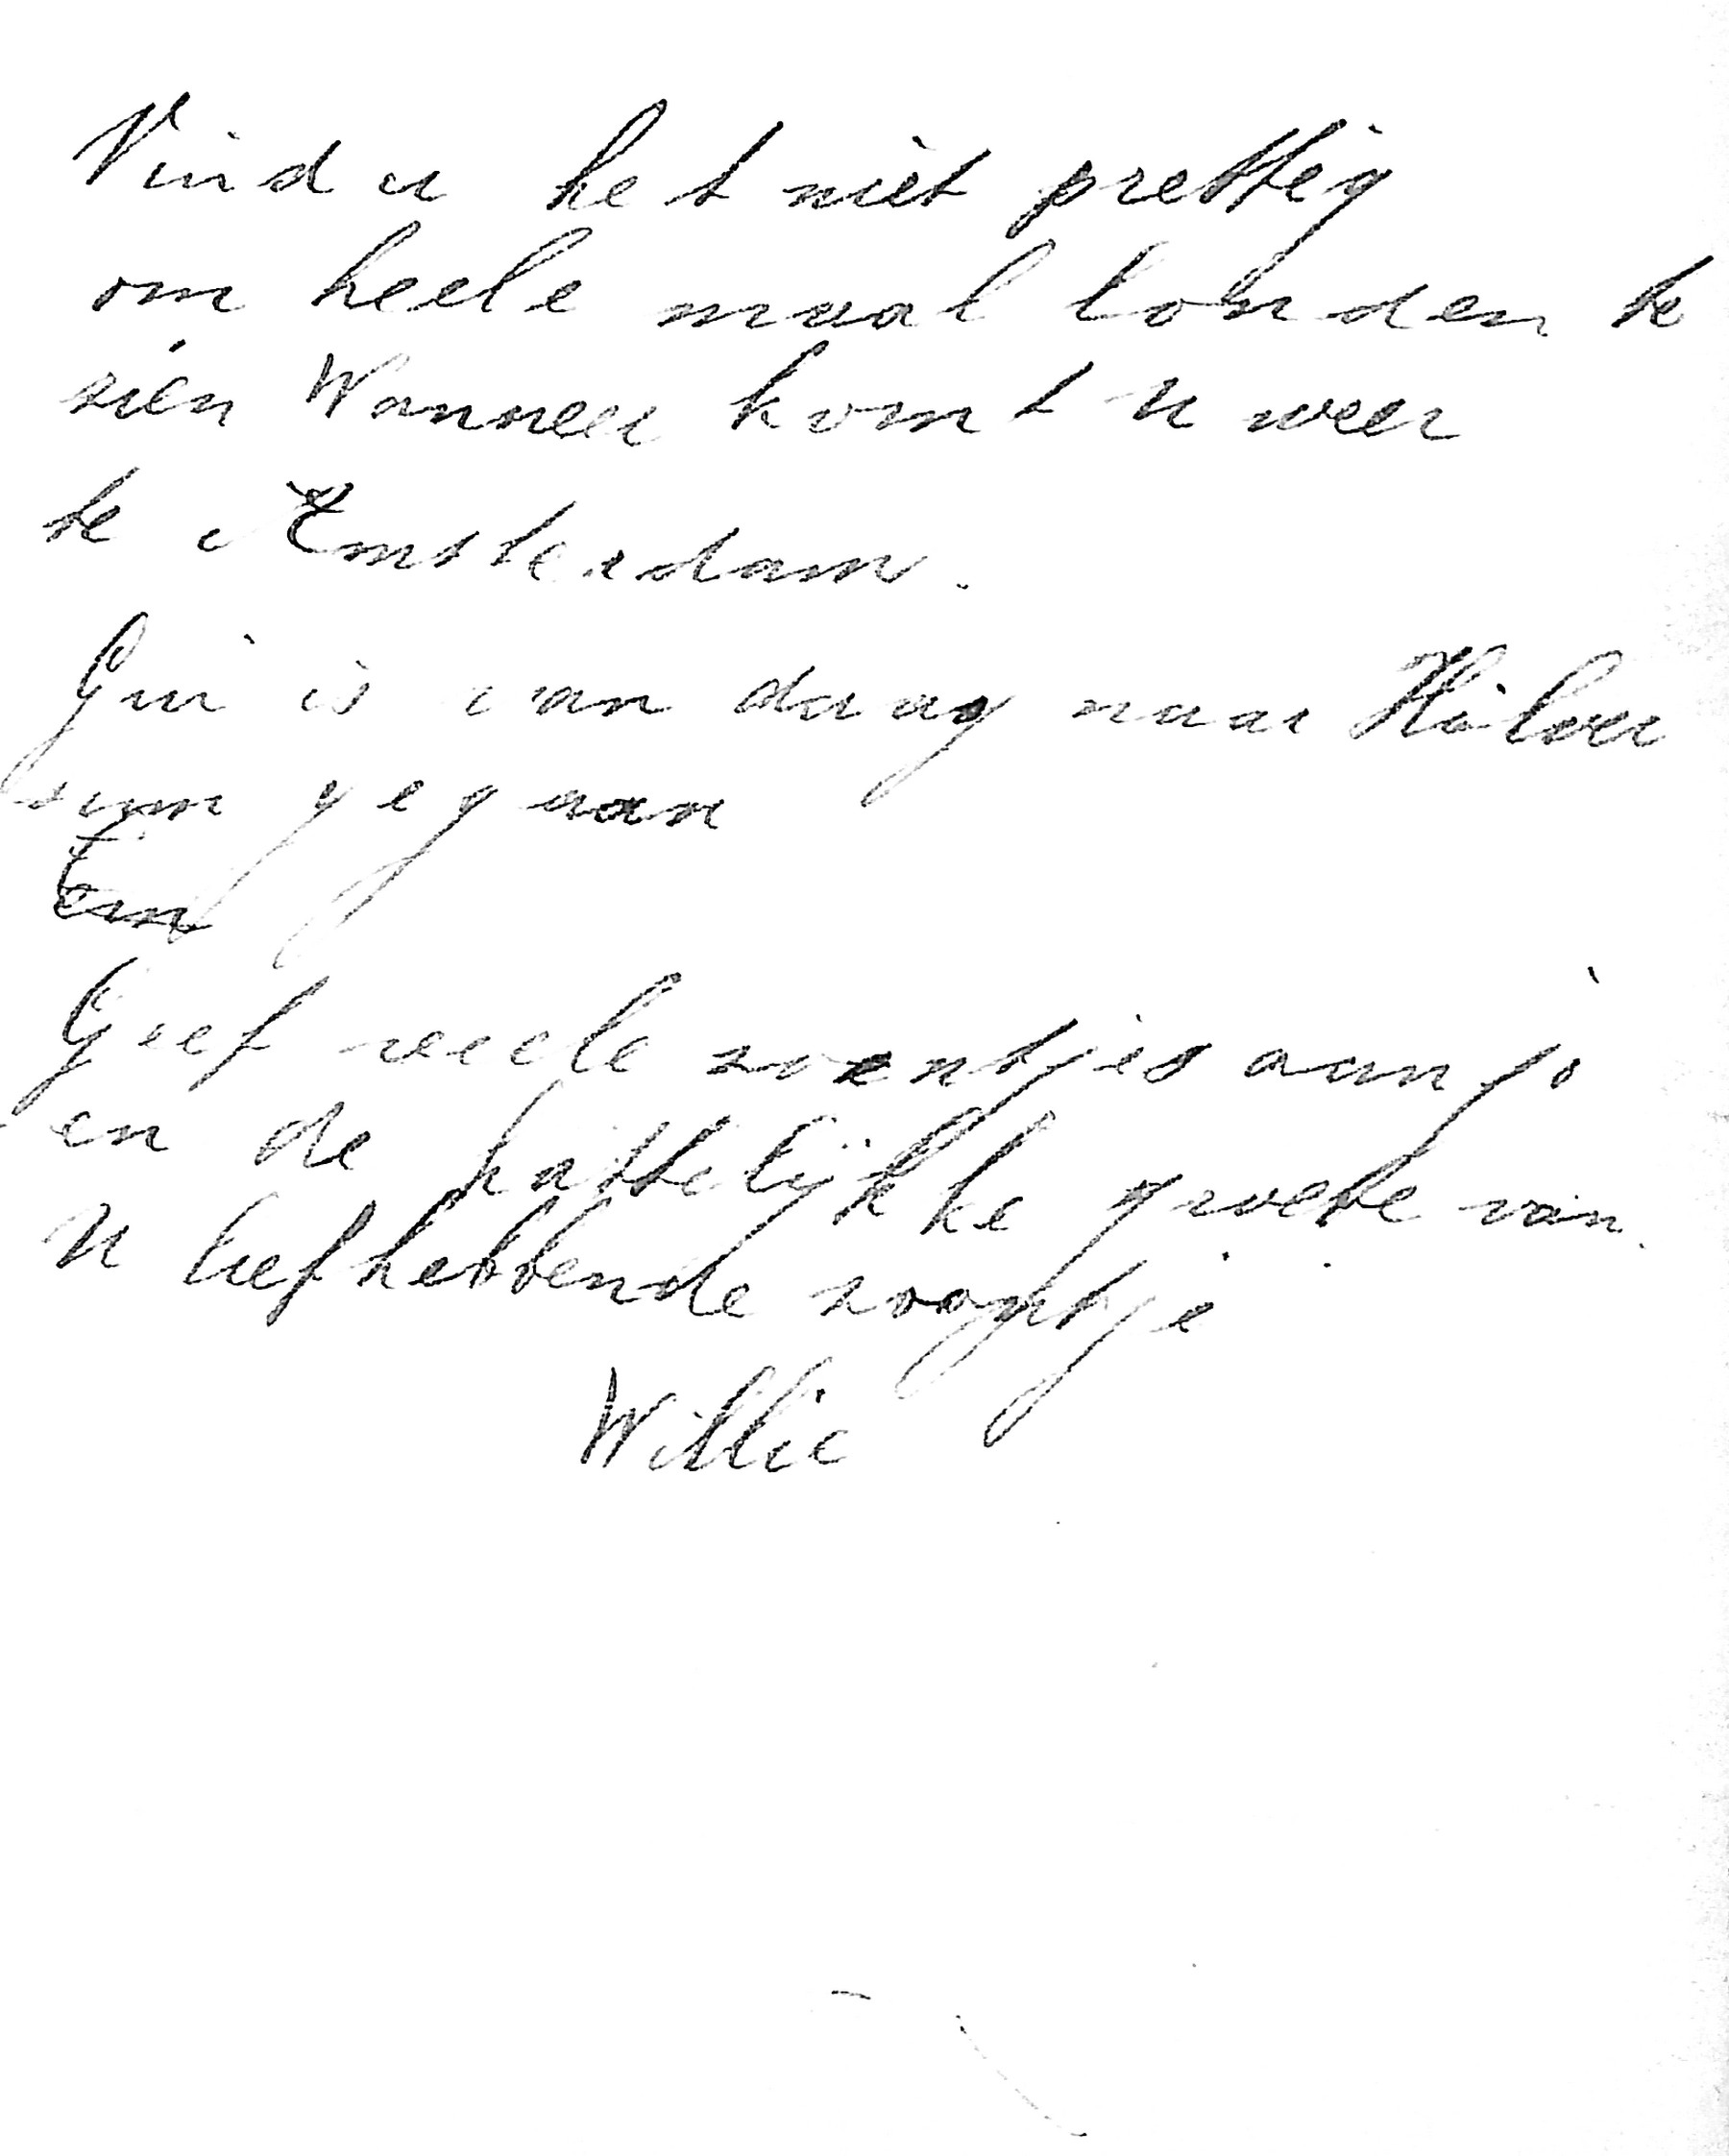 Vind u het niet prettig
om heele maal londen te
zien Wanneer komt u weer
te Amsterdam.
is van daag naar Hilver
sum gegaan
Geef veele zoentjes aan jo
en de hattelijkke groete van
U liefhebbende zoontje
Willie